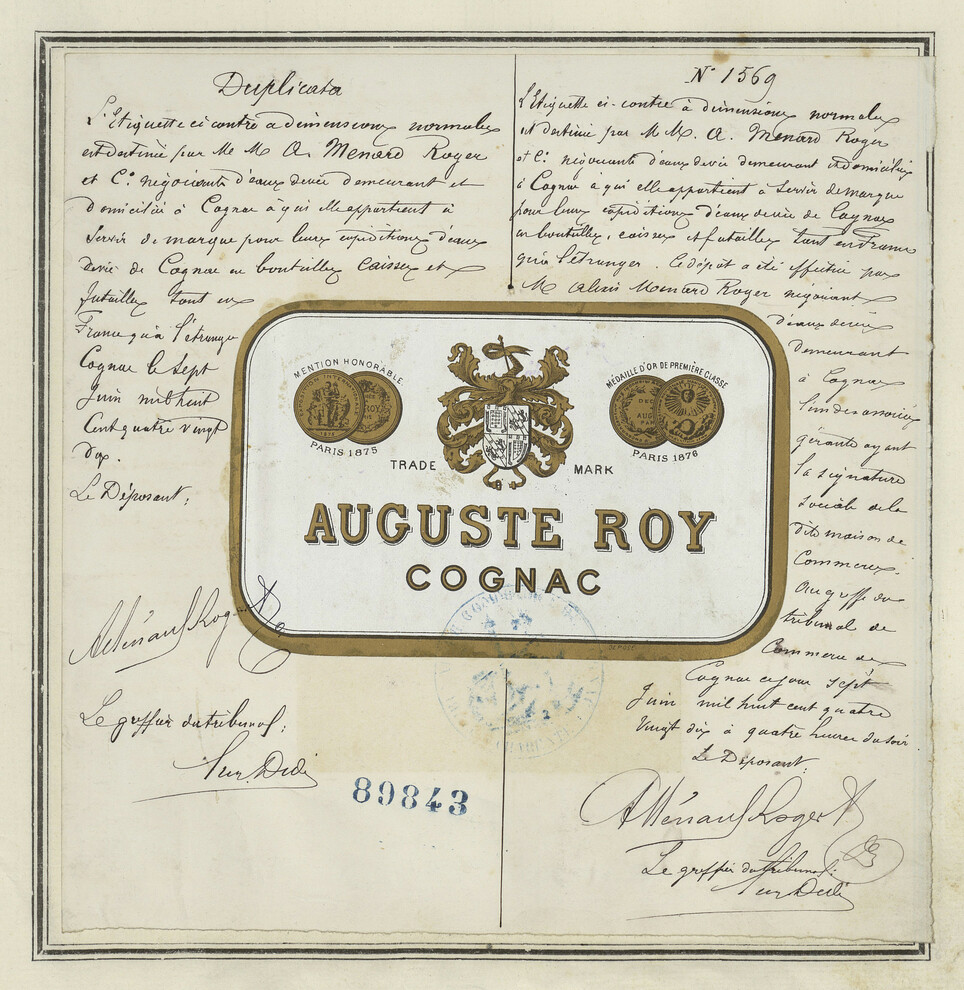 Duplicata
L'Etiquette ci contre a dimensions normales
est destinée par M M A. Menard Roger
et Cº négociants d'eaux de vie demeurant et
Domiciliés à Cognac à qui elle appartient à
Servir de marque pour leurs expéditions d'eaux
de vie de Cognac en bouteilles caisses et
futailles tant en
France qu'à l'étranger
Cognac le Sept
Juin mil huit
Cent quatre vingt
Dix.
Le Déposant;
A Ménard Roger & Co
Le greffier du tribunal;
89843
N° 1569
L'Etiquette ci-contre à dimensions normales
est destinée par M M. A. Menard Roger
et Cº. négociants d'eaux de vie demeurant et domiciliés
à Cognac à qui elle appartient à Servir de marque
pour leurs expéditions d'eaux de vie de Cognac
en bouteilles, caisses et futailles tant en France
qu'à l'étranger. Ce dépôt a été effectué par
M. Alexis Menard Roger négociant
d'eaux de vie
demeurant
à Cognac
l'un des associés
gérants ayant
la signature
sociale de la
dite maison de
Commerce.
Au greffe du
tribunal de
Commerce de
Cognac ce jour sept
Juin mil huit cent quatre
Vingt dix à quatre heures du soir
Le Déposant;
A Ménard Roger &
Le greffier du tribunal;
MENTION HONORABLE
PARIS 1875
MÉDAILLE D'OR DE PREMIÈRE CLASSE
PARIS 1876
TRADE MARK
AUGUSTE ROY
COGNAC
DÉPOSÉ